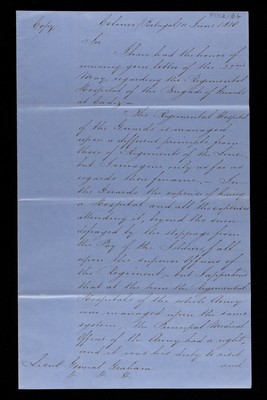 Copy
Colares (Portugal) 11 June 1810
Sir
I have had the honor of
receiving your letter of the 22nd
May, regarding the Regimental
Hospital of the Brigade of Guards
at Cadiz —
The Regimental Hospital
of the Guards is managed
upon a different principle from
those of Regiments of the Line,
but I imagine only as far as
regards their finance. — In
the Guards the expense of having
a Hospital and all the expenses
attending it, beyond the sum
defrayed by the stoppage from
the Pay of the Soldiers, fall
upon the superior Officers of
the Regiment, but I apprehend
that at the time the Regimental
Hospitals of the whole Army
were managed upon the same
system, the Principal Medical
Officer of the Army had a right,
and it was his duty to visit,
and
Lieut General Graham